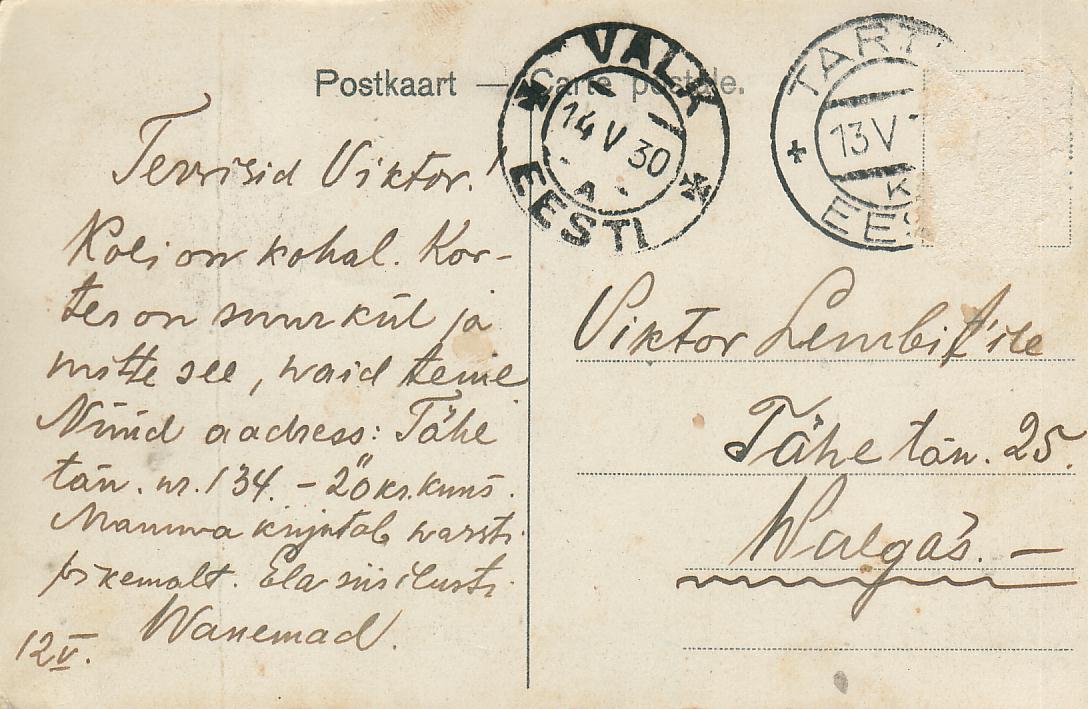 Postkaart — Carte postale.
VALK
14 V 30
A
EESTI
TART
13 V
K
EES
Tervisid Viktor!
Koli on kohal. Kor-
ter on suur kül ja
mitte see, waid teine
Nüüd aadress: Tähe
tän. nr. 134. – 20 kr. kuus.
Mamma kirjutab warsti
pikemalt. Ela siis ilusti.
Wanemad.
12 V.
Viktor Lembit'ile
Tähe tän. 25.
Walgas. —